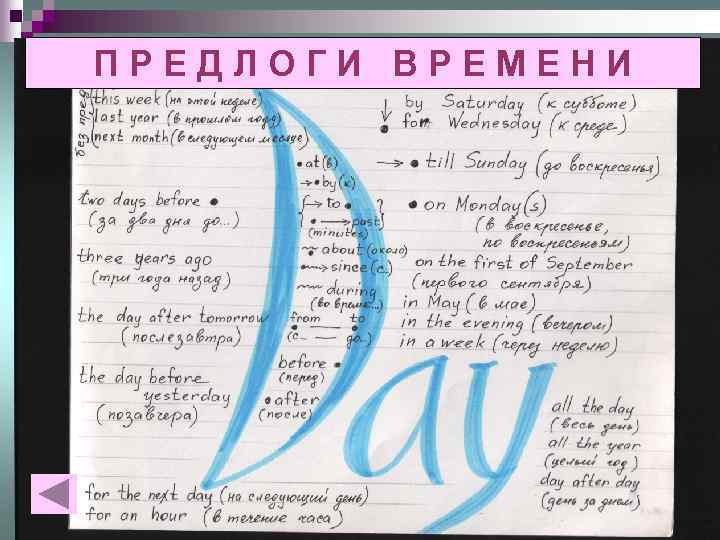 ПРЕДЛОГИ ВРЕМЕНИ
без пред
this week (на этой неделе)
last year (в прошлом году)
next month (в следующем месяце)
two days before
(за два дня до...)
three years ago
(три года назад)
the day after tomorrow
(послезавтра)
the day before
yesterday
(позавчера)
at (в)
by (к)
to
past
(minutes)
about (около)
since (с.)
during
(во время...)
from to
(с... до...)
before
(перед)
after
(после)
by Saturday (к субботе)
for Wednesday (к среде)
till Sunday (до воскресенья)
on Monday(s)
(в воскресенье,
по воскресеньям)
on the first of September
(первого сентября)
in May (в мае)
in the evening (вечером)
in a week (через неделю)
Day
all the day
(весь день)
all the year
(целый год)
day after day
(день за днем)
for the next day (на следующий день)
for an hour (в течение часа)